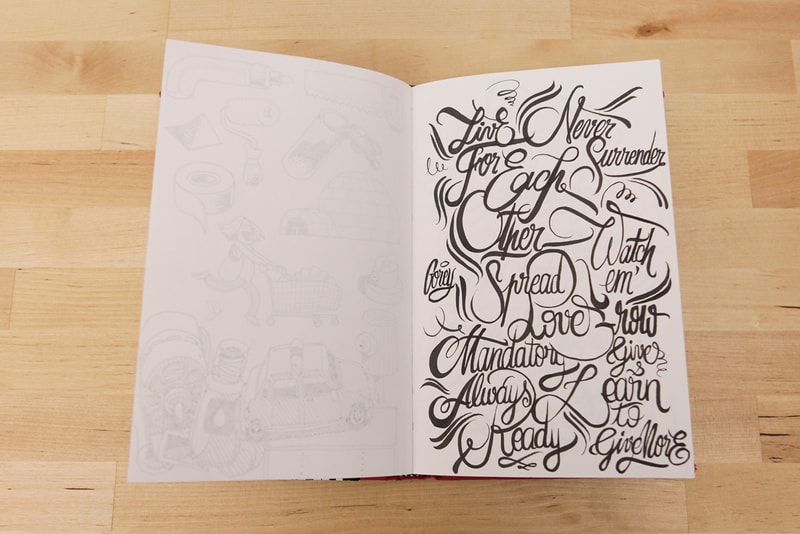 Live
For
Each
Other
Never
Surrender
Spread
Love
Watch
em'
row
Mandatory
Always
Ready
Give
Learn
to
Give More